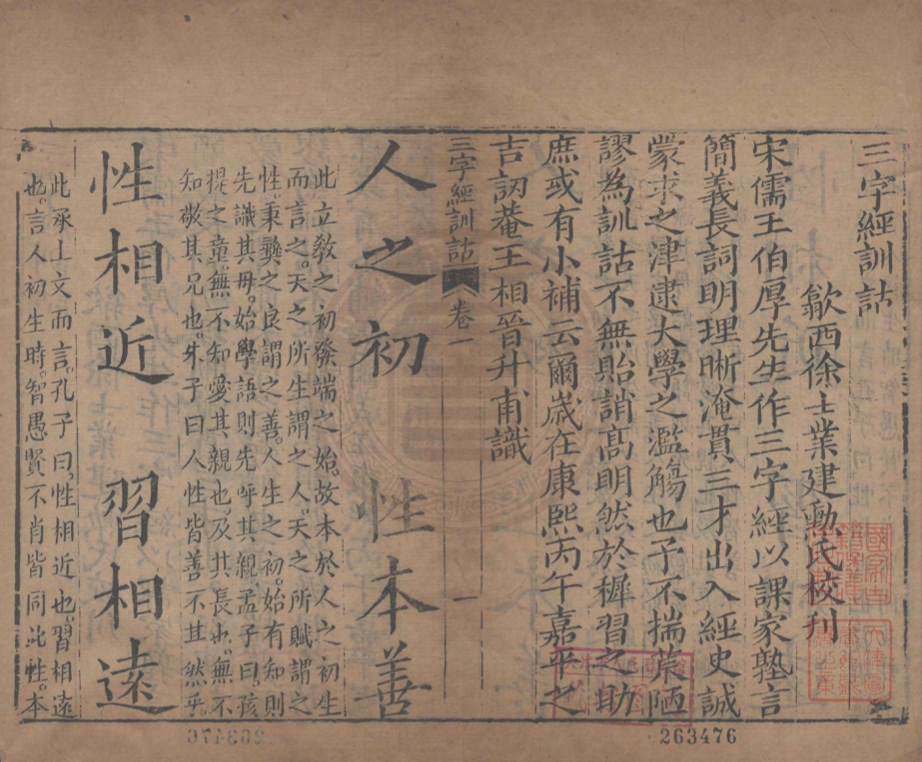 三字經訓詁
歙西徐士業建勲氏校刋
宋儒王伯厚先生作三字經以課家塾言
簡義長詞明理晰淹貫三才出入經史誠
蒙求之津逮大學之濫觴也予不揣萊陋
謬為訓詁不無貽誚高明然於穉習之助
庶或有小補云爾嵗在康熙丙午嘉平之
吉訒菴王相晉升甫識
三字經訓詁 卷一 一
人之初 性本善
此立教之初發端之始。故本於人之初生
而言之。天之所生謂之人。天之所賦謂之
性。秉彝之良謂之善。人生之初。始有知則
先識其母。始學語則先呼其親。孟子曰。孩
提之童。無不知愛其親也。及其長也。無不
知敬其兄也。朱子曰人性皆善不其然乎
性相近 習相遠
此承上文而言。孔子曰。性相近也。習相遠
也。言人初生時。智愚賢不肖皆同此性。本
263476